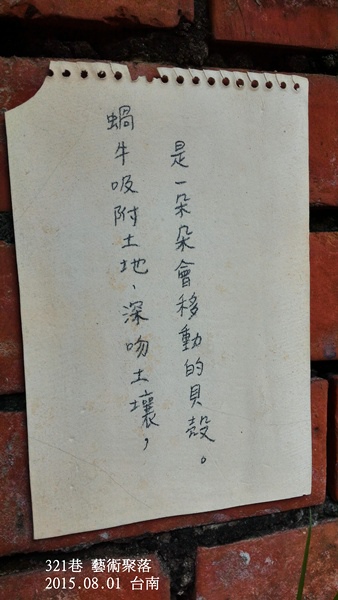 蝸牛吸附土地、深吻土壤，
是一朵朵會移動的貝殼。
321巷 藝術聚落
2015.08.01 台南